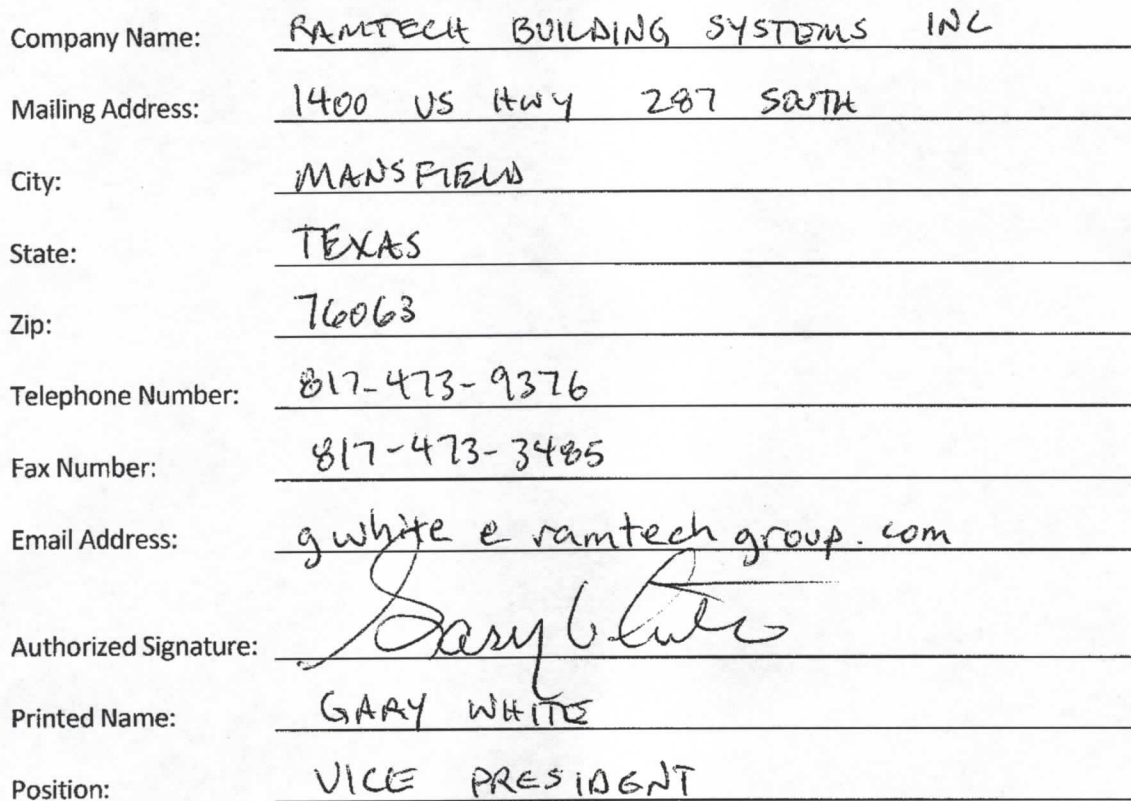 Company Name: RAMTECH BUILDING SYSTEMS INC
Mailing Address: 1400 US HWY 287 SOUTH
City: MANSFIELD
State: TEXAS
Zip: 76063
Telephone Number: 817-473-9376
Fax Number: 817-473-3485
Email Address: gwhite @ ramtechgroup.com
Authorized Signature: Gary White
Printed Name: GARY WHITE
Position: VICE PRESIDENT